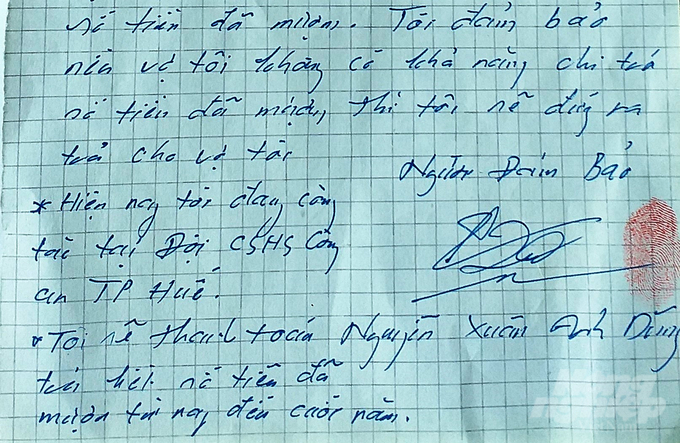 số tiền đã mượn. Tôi đảm bảo
nếu vợ tôi không có khả năng chi trả
số tiền đã mượn, thì tôi sẽ đứng ra
trả cho vợ tôi
Người Đảm Bảo
* Hiện nay tôi đang công
tác tại Đội CSHS Công
an TP Huế.
* Tôi sẽ thanh toán
trả hết số tiền đã
mượn từ nay đến cuối năm.
Nguyễn Xuân Anh Dũng